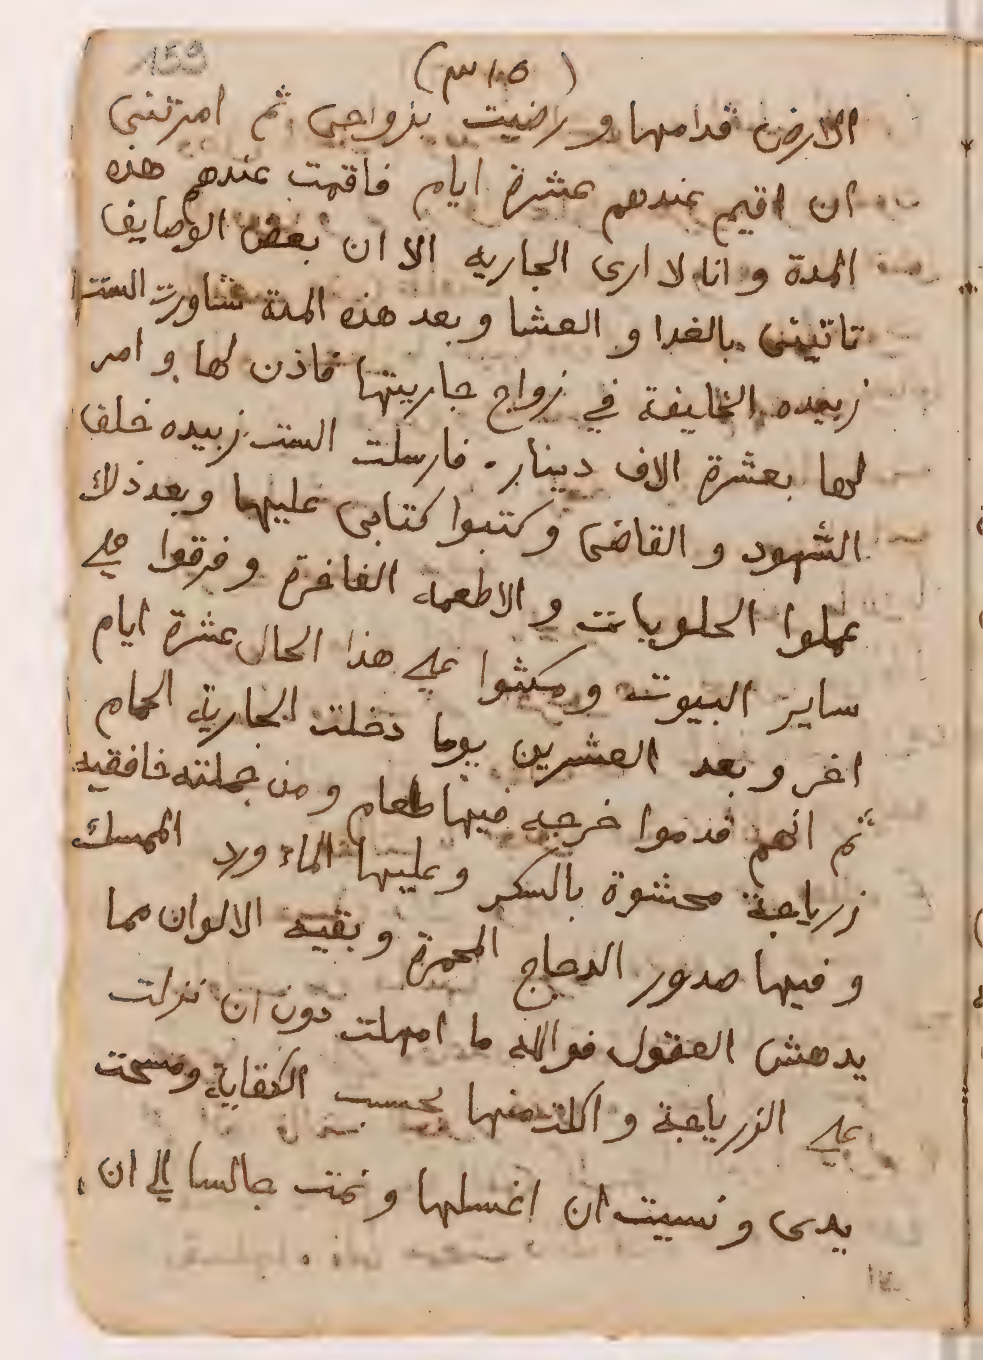 159
(٣١٥)
الارض قدامها و رضيت بزواجى ثم امرتنى
ان اقيم عندهم عشرة ايام فاقمت عندهم هذه
المدة و انا لا ارى الجاريه الا ان بعض الوصايف
تاتينى بالغدا و العشا و بعد هذه المدة شاورت الست
زبيده الخليفة في زواج جاريتها فاذن لها و امر
لها بعشرة الاف دينار . فارسلت الست زبيده خلف
الشهود و القاضى و كتبوا كتابى عليها وبعد ذلك
عملوا الحلويات و الاطعمه الفاخرة و فرقوا على
ساير البيوت ومكثوا على هذا الحال عشرة ايام
اخر و بعد العشرين يوما دخلت الجارية الحمام
ثم انهم قدموا خرجه فيها طعام و من جملته خافقيه
زرباجة محشوة بالسكر وعليها الماء ورد الممسك
و فيها صدور الدجاج المحمرة و بقية الالوان مما
يدهش العقول فوالله ما امهلت دون ان نزلت
على الزرباجة و اكلت منها بحسب الكفاية ومسحت
يدى و نسيت ان اغسلها و نمت جالسا الى ان